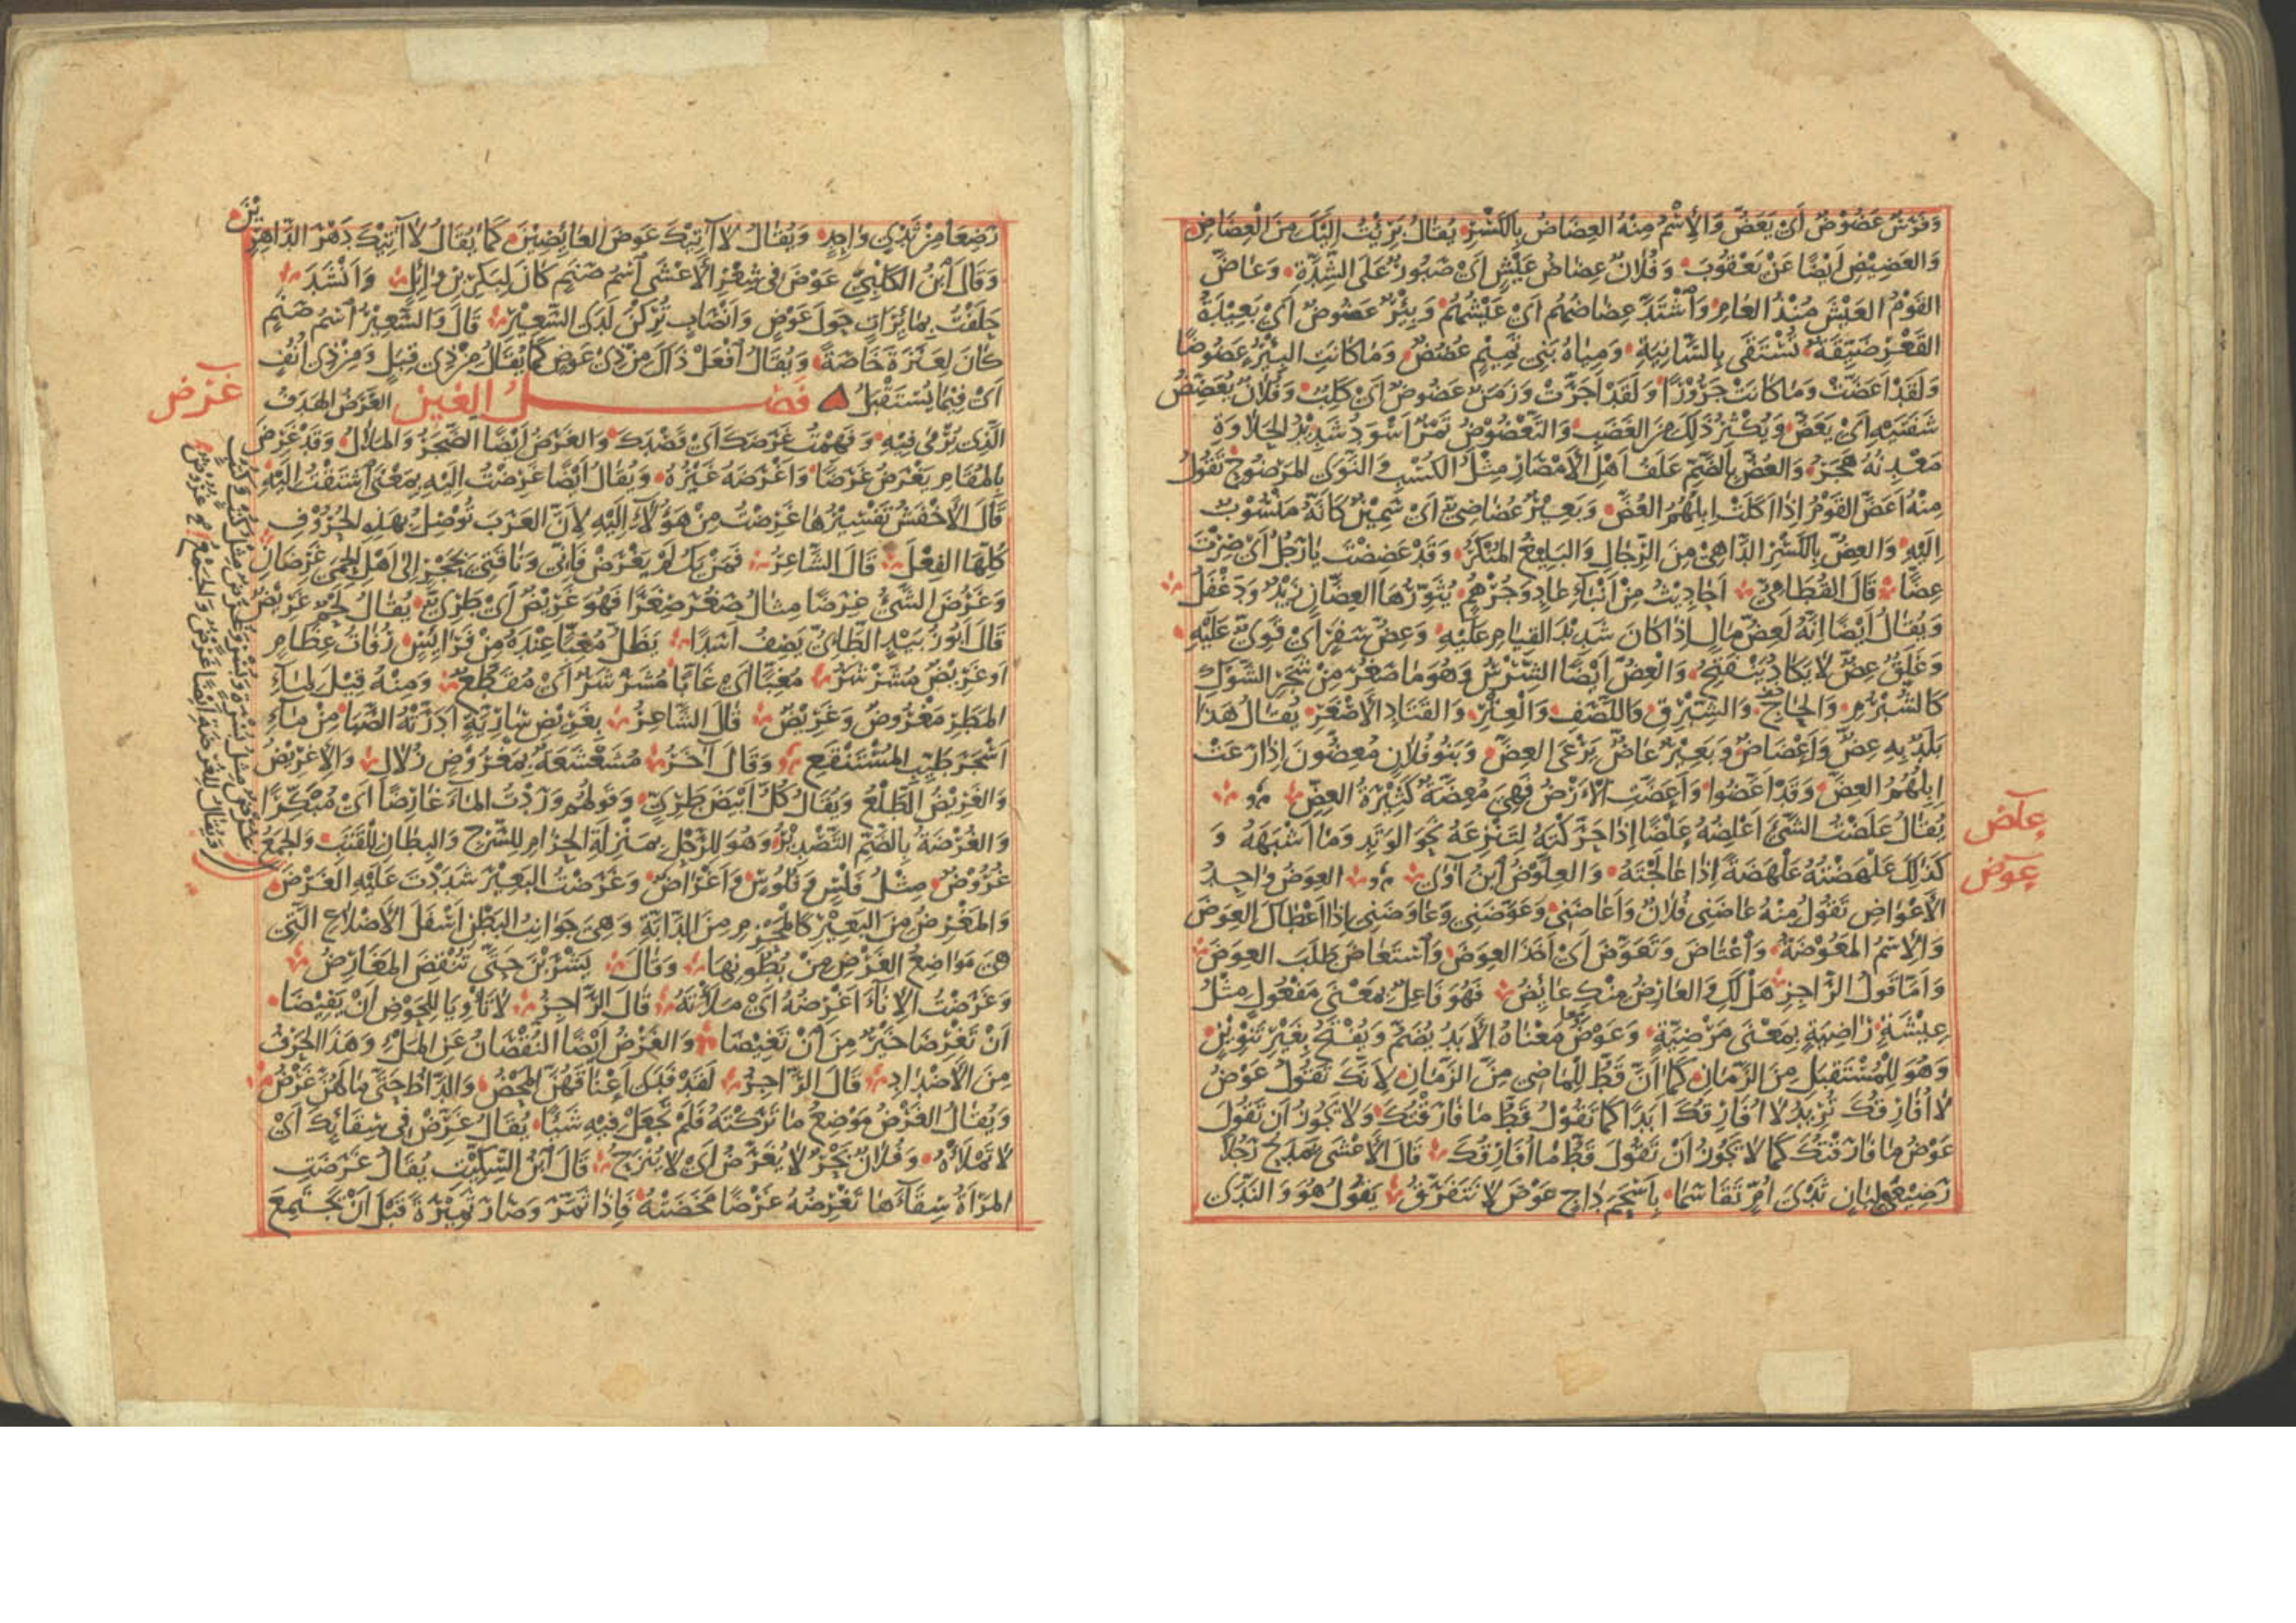 وَفَرَسٌ عَضُوضٌ أَيْ يَعَضُّ وَالْاِسْمُ مِنْهُ العِضَاضُ بِالكَسْرِ يُقَالُ بَرِئْتُ إِلَيْكَ مِنَ الْعِضَاضِ
وَالعَضِيضِ أَيْضًا عَنْ يَعْقُوبَ وَفُلَانٌ عِضَاضُ عَيْشٍ أَيْ صَبُورٌ عَلَى الشِّدَّةِ وَعَاضَّ
القَوْمُ العَيْشَ مُنْذُ العَامِ وَاشْتَدَّ عِضَاضُهُمْ أَيْ عَيْشُهُمْ وَبِئْرٌ عَضُوضٌ أَيْ بَعِيدَةُ
القَعْرِ ضَيِّقَةٌ تُسْتَقَى بِالسَّانِيَةِ وَمِيَاهُ بَنِي تَمِيمٍ عُضُضٌ وَمَا كَانَتِ البِئْرُ عَضُوضًا
وَلَقَدْ أَعَضَّتْ وَمَا كَانَتْ جَرُورًا وَلَقَدْ أَجَرَّتْ وَزَمَنٌ عَضُوضٌ أَيْ كَلِبٌ وَفُلَانٌ يُعَضِّضُ
شَفَتَيْهِ أَيْ يَعَضُّ وَيُكْثِرُ ذَلِكَ مِنَ الغَضَبِ وَالتَّعْضُوضُ تَمْرٌ أَسْوَدُ شَدِيدُ الحَلَاوَةِ
مَعْدِنُهُ هَجَرُ وَالعُضُّ بِالضَّمِّ عَلَفُ أَهْلِ الأَمْصَارِ مِثْلُ الكُسْبِ وَالنَّوَى المَرْضُوخِ تَقُولُ
مِنْهُ أَعَضَّ القَوْمُ إِذَا أَكَلَتْ إِبِلُهُمُ العُضَّ وَبَعِيرٌ عُضَاضِيٌّ أَيْ سَمِينٌ كَأَنَّهُ مَنْسُوبٌ
إِلَيْهِ وَالعِضُّ بِالكَسْرِ الدَّاهِي مِنَ الرِّجَالِ وَالبَلِيغُ المُنْكَرُ وَقَدْ عَضِضْتَ يَا رَجُلُ أَيْ صِرْتَ
عِضًّا قَالَ القُطَامِيُّ أَحَادِيثُ مِنْ أَنْبَاءِ عَادٍ وَجُرْهُمٍ يُثَوِّرُهَا العِضَّانِ زَيْدٌ وَدَغْفَلُ
وَيُقَالُ أَيْضًا إِنَّهُ لَعِضُّ مَالٍ إِذَا كَانَ شَدِيدَ القِيَامِ عَلَيْهِ وَعِضُّ سَفَرٍ أَيْ قَوِيٌّ عَلَيْهِ
وَغَلَقٌ عِضٌّ لَا يَكَادُ يَنْفَتِحُ وَالْعِضُّ أَيْضًا الشِّرْسُ وَهُوَ مَا صَغُرَ مِنْ شَجَرِ الشَّوْكِ
كَالشُّبْرُمِ وَالحَاجِ وَالشِّبْرِقِ وَاللَّصَفِ وَالْعِتْرِ وَالقَتَادِ الأَصْغَرِ يُقَالُ هَذَا
بَلَدٌ بِهِ عِضٌّ وَأَعْضَاضٌ وَبَعِيرٌ عَاضٌّ يَرْعَى العِضَّ وَبَنُو فُلَانٍ مُعِضُّونَ إِذَا رَعَتْ
إِبِلُهُمُ العِضَّ وَقَدْ أَعَضُّوا وَأَعَضَّتِ الْأَرْضُ فَهِيَ مُعِضَّةٌ كَثِيرَةُ العِضِّ
علض
يُقَالُ عَلَضْتُ الشَّيْءَ أَعْلِضُهُ عَلْضًا إِذَا حَرَّكْتَهُ لِتَنْزِعَهُ نَحْوَ الوَتِدِ وَمَا أَشْبَهَهُ وَ
عوض
كَذَلِكَ عَلْهَضْتُهُ عَلْهَضَةً إِذَا عَالَجْتَهُ وَالعِلَّوْضُ ابْنُ آوَى العِوَضُ وَاحِدُ
الْأَعْوَاضِ تَقُولُ مِنْهُ عَاضَنِي فُلَانٌ وَأَعَاضَنِي وَعَوَّضَنِي وَعَاوَضَنِي إِذَا أَعْطَاكَ العِوَضَ
وَالْاِسْمُ المَعُوضَةُ وَاعْتَاضَ وَتَعَوَّضَ أَيْ أَخَذَ العِوَضَ وَاسْتَعَاضَ طَلَبَ العِوَضَ
وَأَمَّا قَوْلُ الرَّاجِزِ هَلْ لَكِ وَالعَارِضُ مِنْكِ عَائِضُ فَهُوَ فَاعِلٌ بِمَعْنَى مَفْعُولٍ مِثْلُ
عِيشَةٍ رَاضِيَةٍ بِمَعْنَى مَرْضِيَّةٍ وَعَوْضُ مَعْنَاهُ الأَبَدُ يُضَمُّ وَيُفْتَحُ بِغَيْرِ تَنْوِينٍ
وَهُوَ لِلْمُسْتَقْبَلِ مِنَ الزَّمَانِ كَمَا أَنَّ قَطُّ لِلْمَاضِي مِنَ الزَّمَانِ لِأَنَّكَ تَقُولُ عَوْضُ
لَا أُفَارِقُكَ تُرِيدُ لَا أُفَارِقُكَ أَبَدًا كَمَا تَقُولُ قَطُّ مَا فَارَقْتُكَ وَلَا يَجُوزُ أَنْ تَقُولَ
عَوْضُ مَا فَارَقْتُكَ كَمَا لَا يَجُوزُ أَنْ تَقُولَ قَطُّ مَا أُفَارِقُكَ قَالَ الأَعْشَى يَمْدَحُ رَجُلًا
رَضِيعَيْ لِبَانٍ ثَدْيَ أُمٍّ تَقَاسَمَا بِأَسْحَمَ دَاجٍ عَوْضَ لَا نَتَفَرَّقُ يَقُولُ هُوَ وَالنَّدَى
رَضَعَا مِنْ ثَدْيٍ وَاحِدٍ وَيُقَالُ لَا آتِيكَ عَوْضَ العَائِضِينَ كَمَا يُقَالُ لَا آتِيكَ دَهْرَ الدَّاهِرِينَ
وَقَالَ ابْنُ الكَلْبِيِّ عَوْضُ فِي شِعْرِ الأَعْشَى اسْمُ صَنَمٍ كَانَ لِبَكْرِ بْنِ وَائِلٍ وَأَنْشَدَ
حَلَفْتُ بِمَائِرَاتٍ حَوْلَ عَوْضٍ وَأَنْصَابٍ تُرِكْنَ لَدَى السَّعِيرِ قَالَ وَالسَّعِيرُ اسْمُ صَنَمٍ
كَانَ لِعَنَزَةَ خَاصَّةً وَيُقَالُ افْعَلْ ذَاكَ مِنْ ذِي عَوْضٍ كَمَا يُقَالُ مِنْ ذِي قِبَلٍ وَمِنْ ذِي أُنُفٍ
أَيْ فِيمَا يُسْتَقْبَلُ فَصْلُ الغَين الغَرَضُ الهَدَفُ
غرض
الَّذِي يُرْمَى فِيهِ وَفَهِمْتُ غَرَضَكَ أَيْ قَصْدَكَ وَالغَرَضُ أَيْضًا الضَّجَرُ وَالمَلَالُ وَقَدْ غَرِضَ
بِالمُقَامِ يَغْرَضُ غَرَضًا وَأَغْرَضَهُ غَيْرُهُ وَيُقَالُ أَيْضًا غَرِضْتُ إِلَيْهِ بِمَعْنَى اشْتَقْتُ إِلَيْهِ
قَالَ الأَخْفَشُ تَفْسِيرُهَا غَرِضْتُ مِنْ هَؤُلَاءِ إِلَيْهِ لِأَنَّ العَرَبَ تُوصِلُ بِهَذِهِ الحُرُوفِ
كُلِّهَا الفِعْلَ قَالَ الشَّاعِرُ فَمَنْ يَكُ لَمْ يَغْرَضْ فَإِنِّي وَنَاقَتِي بِحَجْرٍ إِلَى أَهْلِ الحِمَى غَرِضَانِ
وَغَرُضَ الشَّيْءُ غِرَضًا مِثَالُ صَغُرَ صِغَرًا فَهُوَ غَرِيضٌ أَيْ طَرِيٌّ يُقَالُ لَحْمٌ غَرِيضٌ
قَالَ أَبُو زُبَيْدٍ الطَّائِيُّ يَصِفُ أَسَدًا يَظَلُّ مُغِبًّا عِنْدَهُ مِنْ فَرَائِسٍ رُفَاتُ عِظَامٍ
أَوْ غَرِيضٌ مُشَرْشَرُ مُغِبًّا أَيْ غَابًّا مُشَرْشَرٌ أَيْ مُقَطَّعٌ وَمِنْهُ قِيلَ لِمَاءِ
المَطَرِ مَغْرُوضٌ وَغَرِيضٌ قَالَ الشَّاعِرُ بِغَرِيضِ سَارِيَةٍ أَدَرَّتْهُ الصَّبَا مِنْ مَاءِ
أَسْجَرَ طَيِّبِ المُسْتَنْقَعِ وَقَالَ آخَرُ مُشَعْشَعَةٌ بِمَغْرُوضٍ زُلَالِ وَالْإِغْرِيضُ
وَالغَرِيضُ الطَّلْعُ وَيُقَالُ كُلُّ أَبْيَضَ طَرِيٍّ وَقَوْلُهُمْ وَرَدْتُ المَاءَ غَارِضًا أَيْ مُبْكِرًا
وَالغُرْضَةُ بِالضَّمِّ التَّصْدِيرُ وَهُوَ لِلرَّحْلِ بِمَنْزِلَةِ الحِزَامِ لِلسَّرْجِ وَالبِطَانِ لِلْقَتَبِ وَالجَمْعُ
غُرُوضٌ مِثْلُ فَلْسٍ وَفُلُوسٍ وَأَغْرَاضٌ وَغَرَضْتُ البَعِيرَ شَدَدْتُ عَلَيْهِ الغَرْضَ
وَالمَغْرِضُ مِنَ البَعِيرِ كَالمَحْزِمِ مِنَ الدَّابَّةِ وَهِيَ جَوَانِبُ البَطْنِ أَسْفَلَ الأَضْلَاعِ الَّتِي
هِيَ مَوَاضِعُ الغَرْضِ مِنْ بُطُونِهَا وَقَالَ يَشْرَبْنَ حَتَّى تُنْقَضَ المَغَارِضُ
وَغَرَضْتُ الْإِنَاءَ أَغْرِضُهُ أَيْ مَلَأْتُهُ قَالَ الرَّاجِزُ لَا تَأْوِيَا لِلْحَوْضِ أَنْ يَفِيضَا
أَنْ تَغْرِضَا خَيْرٌ مِنَ أَنْ تَغِيضَا وَالغَرْضُ أَيْضًا النُّقْصَانُ عَنِ المِلْءِ وَهَذَا الحَرْفُ
مِنَ الأَضْدَادِ قَالَ الرَّاجِزُ لَقَدْ فَدَى أَعْنَاقَهُنَّ المَحْضُ وَالدَّأْظُ حَتَّى مَا لَهُنَّ غَرْضُ
وَيُقَالُ الغَرْضُ مَوْضِعُ مَا تَرَكْتَهُ فَلَمْ تَجْعَلْ فِيهِ شَيْئًا يُقَالُ غَرِّضْ فِي سِقَائِكَ أَيْ
لَا تَمْلَأْهُ وَفُلَانٌ بَحْرٌ لَا يُغَرَّضُ أَيْ لَا يُنْزَحُ قَالَ ابْنُ السِّكِّيتِ يُقَالُ غَرَضَتِ
المَرْأَةُ سِقَاءَهَا تَغْرِضُهُ غَرْضًا مَخَضَتْهُ فَإِذَا ثَمَّرَ وَصَارَ ثَمِيرَةً قَبْلَ أَنْ يَجْتَمِعَ